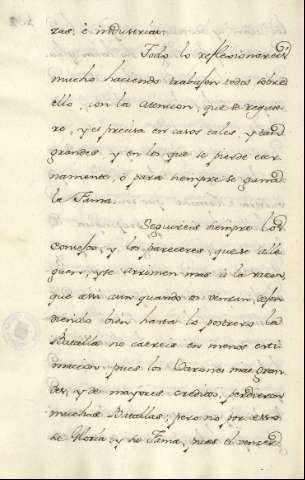 zas, è industrias.
Todo lo reflexionareis
mucho haciendo trabajen todos sobre
ello, con la atencion, que se requie-
re, y es precisa en casos tales, y tan
grandes, y en los que se pierde eter-
namente, ò para siempre se gana
la Fama.
Seguireis siempre los
Consejos, y los pareceres, que se alle-
guen, y se arrimen mas à la razon,
que assi aun quando os venzan defen-
diendo bien hasta lo postrero la
Batalla no caereis en menos esti-
macion pues los Varones mas gran-
des, y de mayores creditos, perdieron
muchas Batallas, pero no por esso
se Gloria, y su Fama, pues el